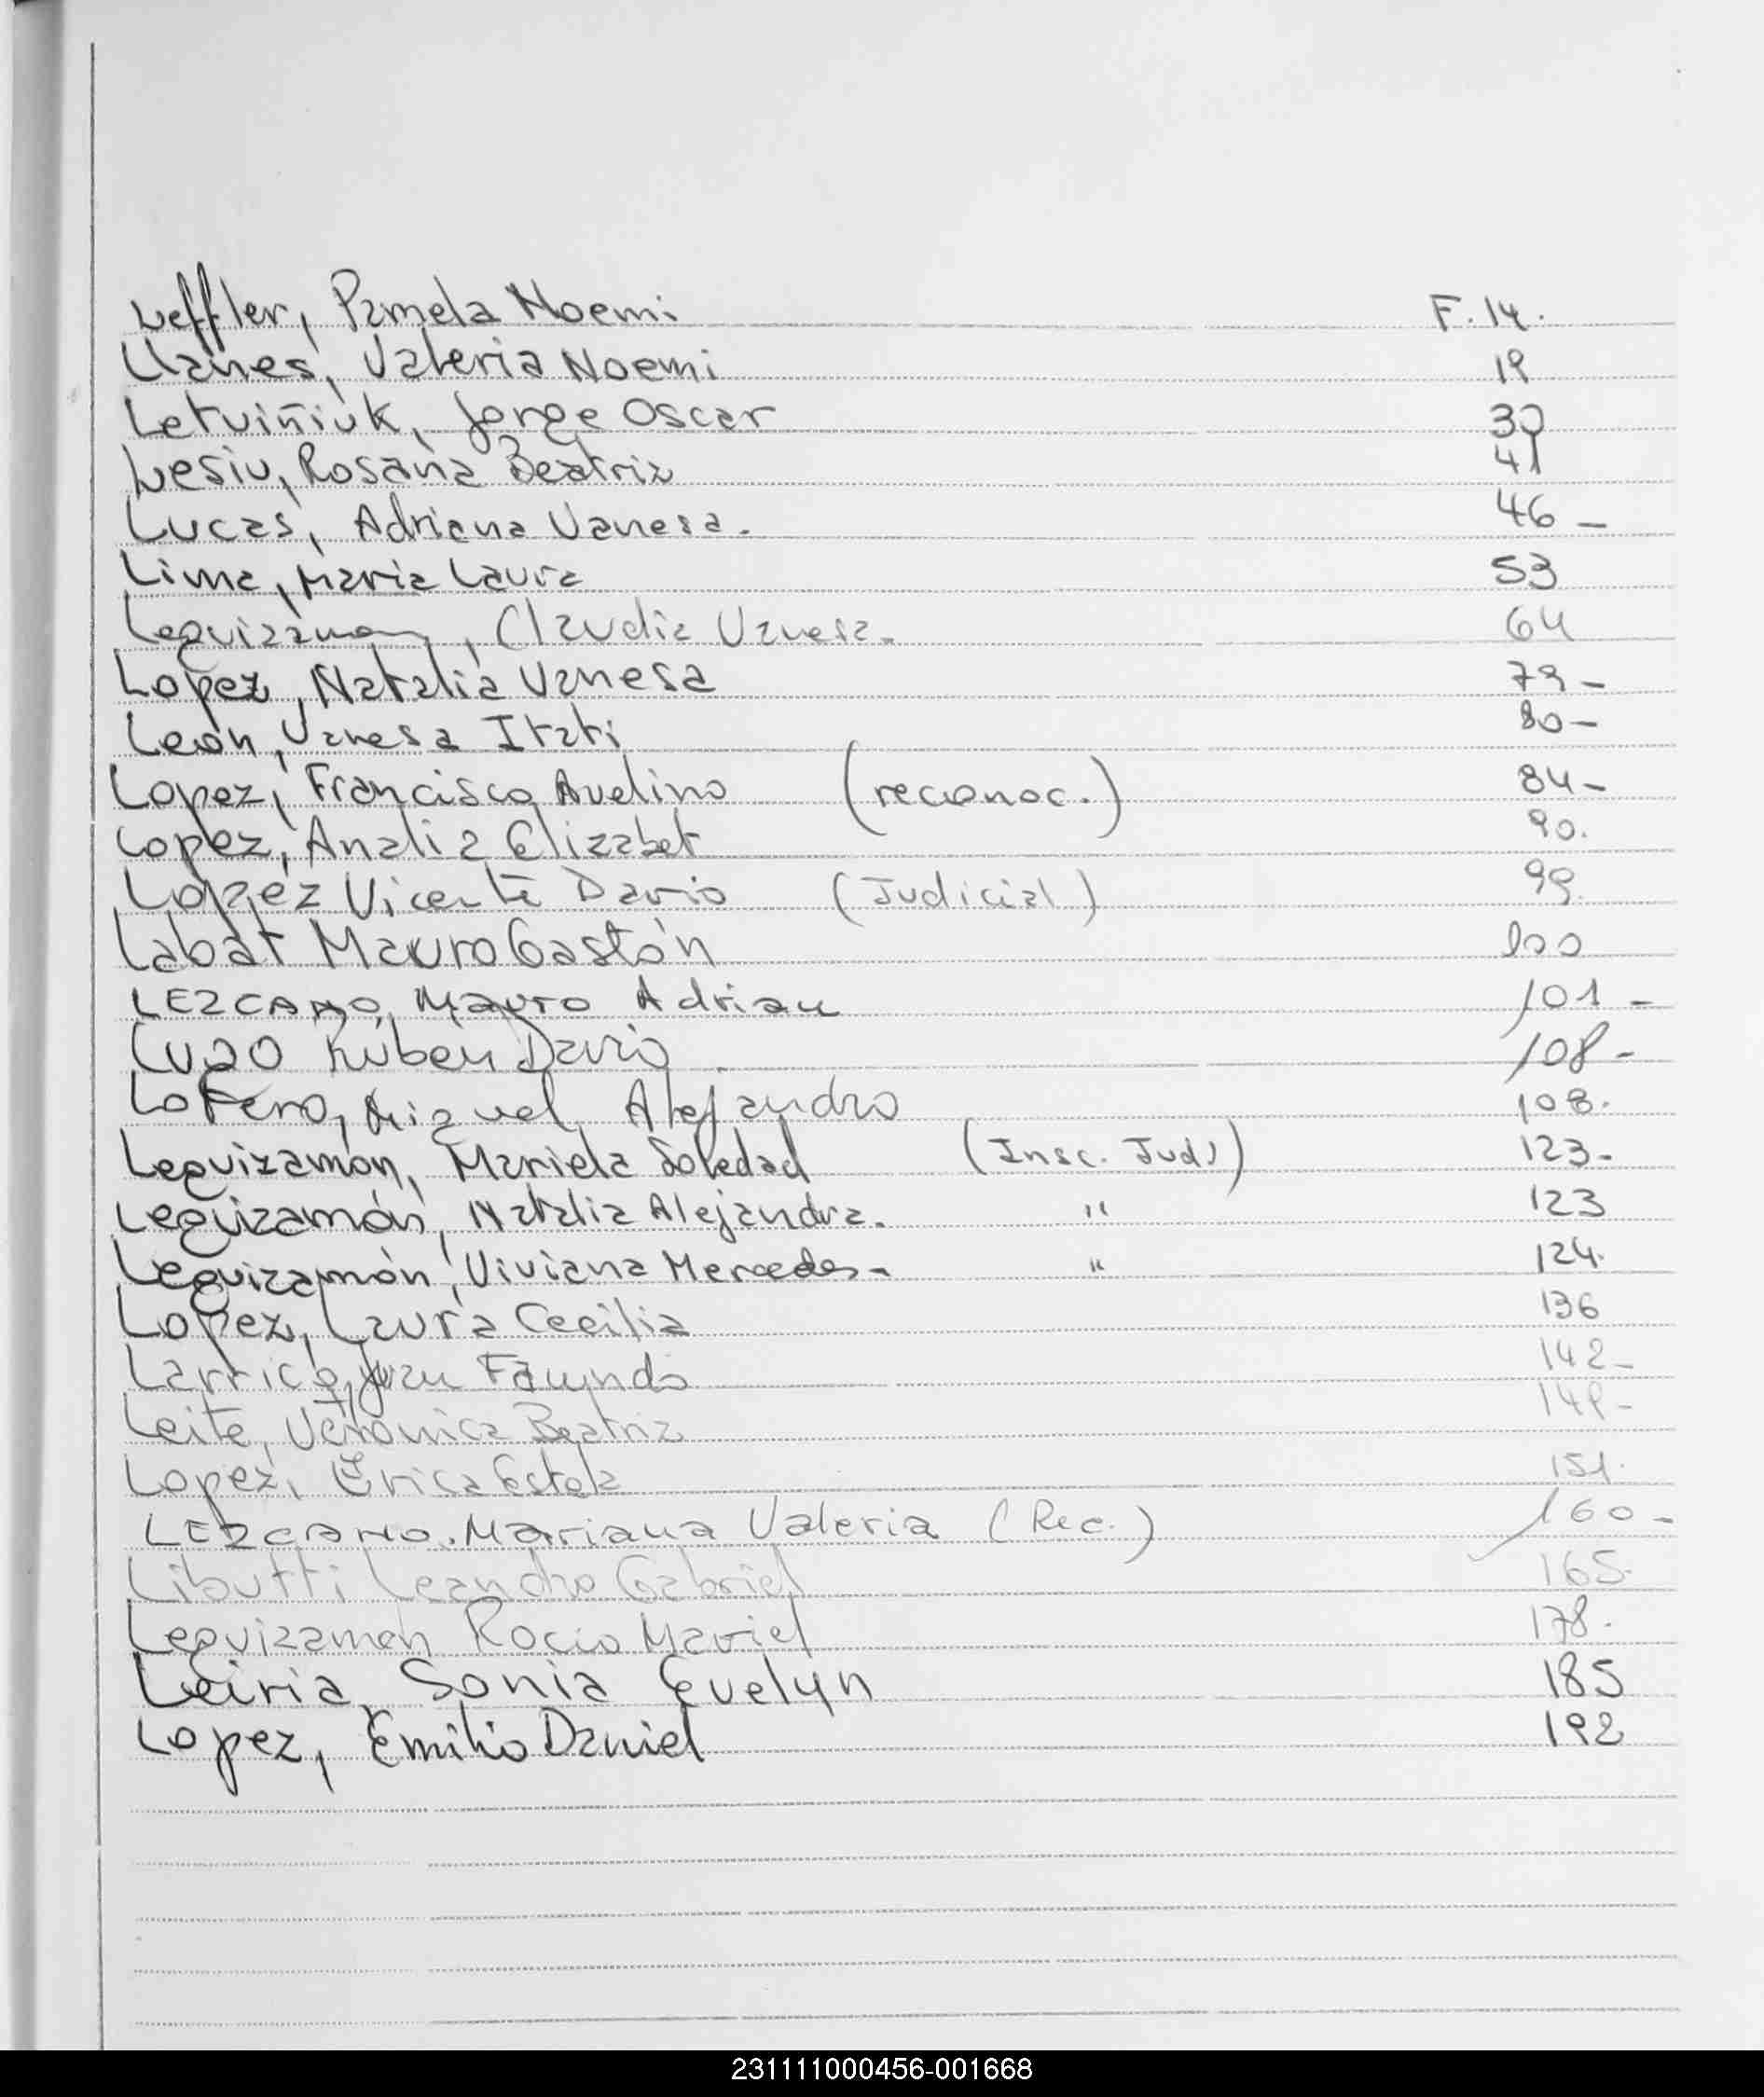 Leffler, Pamela Noemi F. 14.
Llanes, Valeria Noemi 19
Letviñiuk, Jorge Oscar 30
Lesiu, Rosana Beatriz 41
Lucas, Adriana Vanesa. 46 -
Lima, Maria Laura 53
Leguizamon, Claudia Vanesa. 64
Lopez, Natalia Vanesa 79 -
León, Vanesa Itati 80 -
Lopez, Francisco Avelino (reconoc.) 84 -
Lopez, Analia Elizabet 90.
Lopez Vicente Dario (Judicial) 99.
Labat Mauro Gastón 100
LEZCANO, Mauro Adrian 101 -
Lugo Ruben Dario 108 -
Lotero, Miguel Alejandro 108.
Leguizamón, Mariela Soledad (Insc. Jud) 123.
Leguizamón, Natalia Alejandra. " 123
Leguizamón, Viviana Mercedes - " 124.
Lopez, Laura Cecilia 136
Larrico, Juan Facundo 142 -
Leite, Veronica Beatriz 149 -
Lopez, Erica Estela 151.
LEZCANO. Mariana Valeria (Rec.) 160 -
Libutti Leandro Gabriel 165.
Leguizamon Rocio Mariel 178.
Leiria, Sonia Evelyn 185
Lopez, Emilio Daniel 192
231111000456-001668